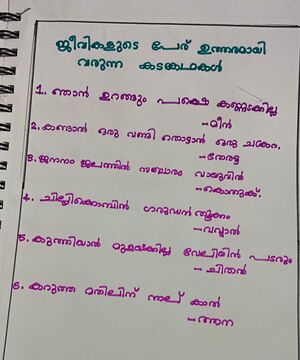 ജീവികളുടെ പേര് ഉത്തരമായി
വരുന്ന കടങ്കഥകൾ
1. ഞാൻ ഉറങ്ങും പക്ഷെ കണ്ണടക്കില്ല
- മീൻ
2. കണ്ടാൽ ഒരു വണ്ടി തൊട്ടാൽ ഒരു ചക്രം.
- തേരട്ട
3. ജനനം ജലത്തിൽ സഞ്ചാരം വായുവിൽ
- കൊതുക്.
4. ചില്ലിക്കൊമ്പിൽ ഗരുഡൻ തൂക്കം
- വവ്വാൽ
5. കുത്തിയാൽ മുളയ്ക്കില്ല വേലിയിൽ പടരും
- ചിതൽ
6. കറുത്ത മതിലിന് നാല് കാൽ
- ആന